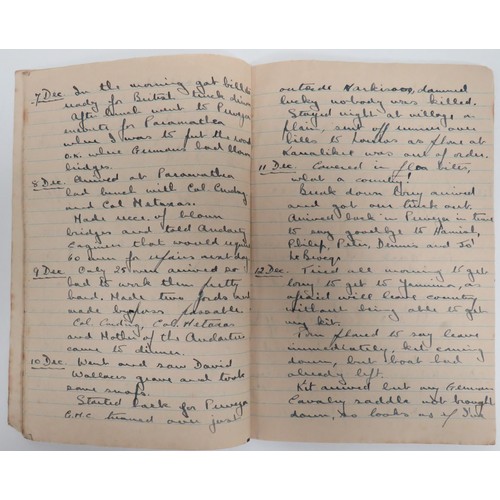 7 Dec. In the morning got billets
ready for British truck drivers
after lunch went to Preveza
enroute for Paramathea
where I was to put the road
o.k. where Germans had blown
bridges.
8 Dec. Arrived at Paramathea
had lunch with Col.
and Col Metaxas.
Made recce. of blown
bridges and told Andarte
engineer that would require
60 men for repairs next day
9 Dec. Only 25 men arrived so
had to work them pretty
hard. Made two fords and
made by-passes passable
Col. Col. Metaxas
and Mother of the Andartes
came to dinner.
10 Dec. Went and saw David
Wallace's grave and took
some snaps.
Started back for Preveza
G.M.C turned over just
outside damned
lucky nobody was killed.
Stayed night at village on
plain, sent off runner over
hills to as phone at
Kanallaki was out of order.
11 Dec. Covered in flea bites,
what a country!
Break down lorry arrived
and got our truck out.
Arrived back in Preveza in time
to say goodbye to Hamish,
Philip, Peter, Dennis and Jo
LeBrocq.
12 Dec. Tried all morning to get
lorry to get to as
afraid will leave country
without being able to get
my kit.
Tom phoned to say leave
immediately, kit coming
down, but boat had
already left.
Kit arrived but my German
Cavalry saddle not brought
down, so looks as if I've